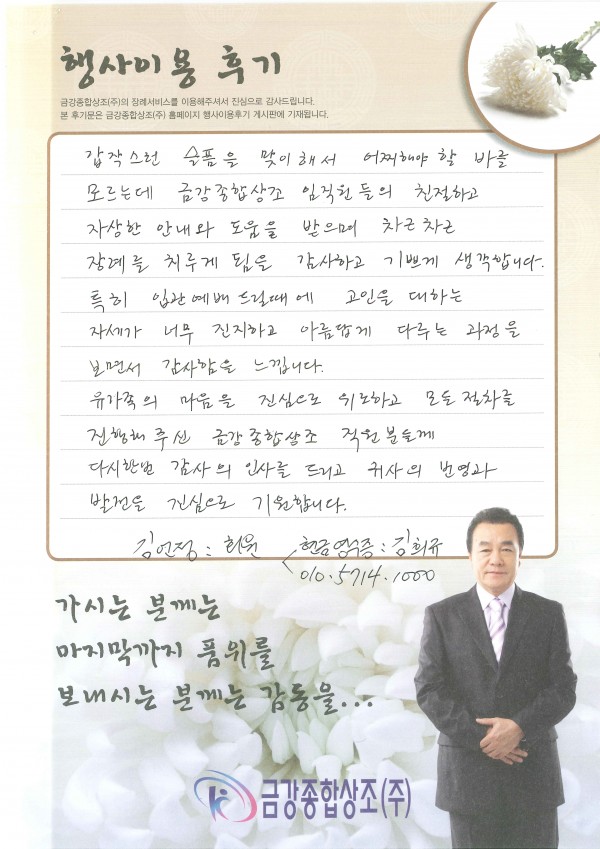 행사이용 후기
금강종합상조(주)의 장례서비스를 이용해주셔서 진심으로 감사드립니다.
본 후기문은 금강종합상조(주) 홈페이지 행사이용후기 게시판에 기재됩니다.
갑작스런 슬픔을 맞이해서 어찌해야 할 바를
모르는데 금강종합상조 임직원들의 친절하고
자상한 안내와 도움을 받으며 차근차근
장례를 치루게 됨을 감사하고 기쁘게 생각합니다.
특히 입관예배 드릴때에 고인을 대하는
자세가 너무 진지하고 아름답게 다루는 과정을
보면서 감사함을 느낍니다.
유가족의 마음을 진심으로 위로하고 모든 절차를
진행해 주신 금강종합상조 직원분들께
다시한번 감사의 인사를 드리고 귀사의 번영과
발전을 진심으로 기원합니다.
김연정: 회원 현금영수증: 김희규
010.5714.1000
가시는 분께는
마지막까지 품위를
보내시는 분께는 감동을...
금강종합상조(주)